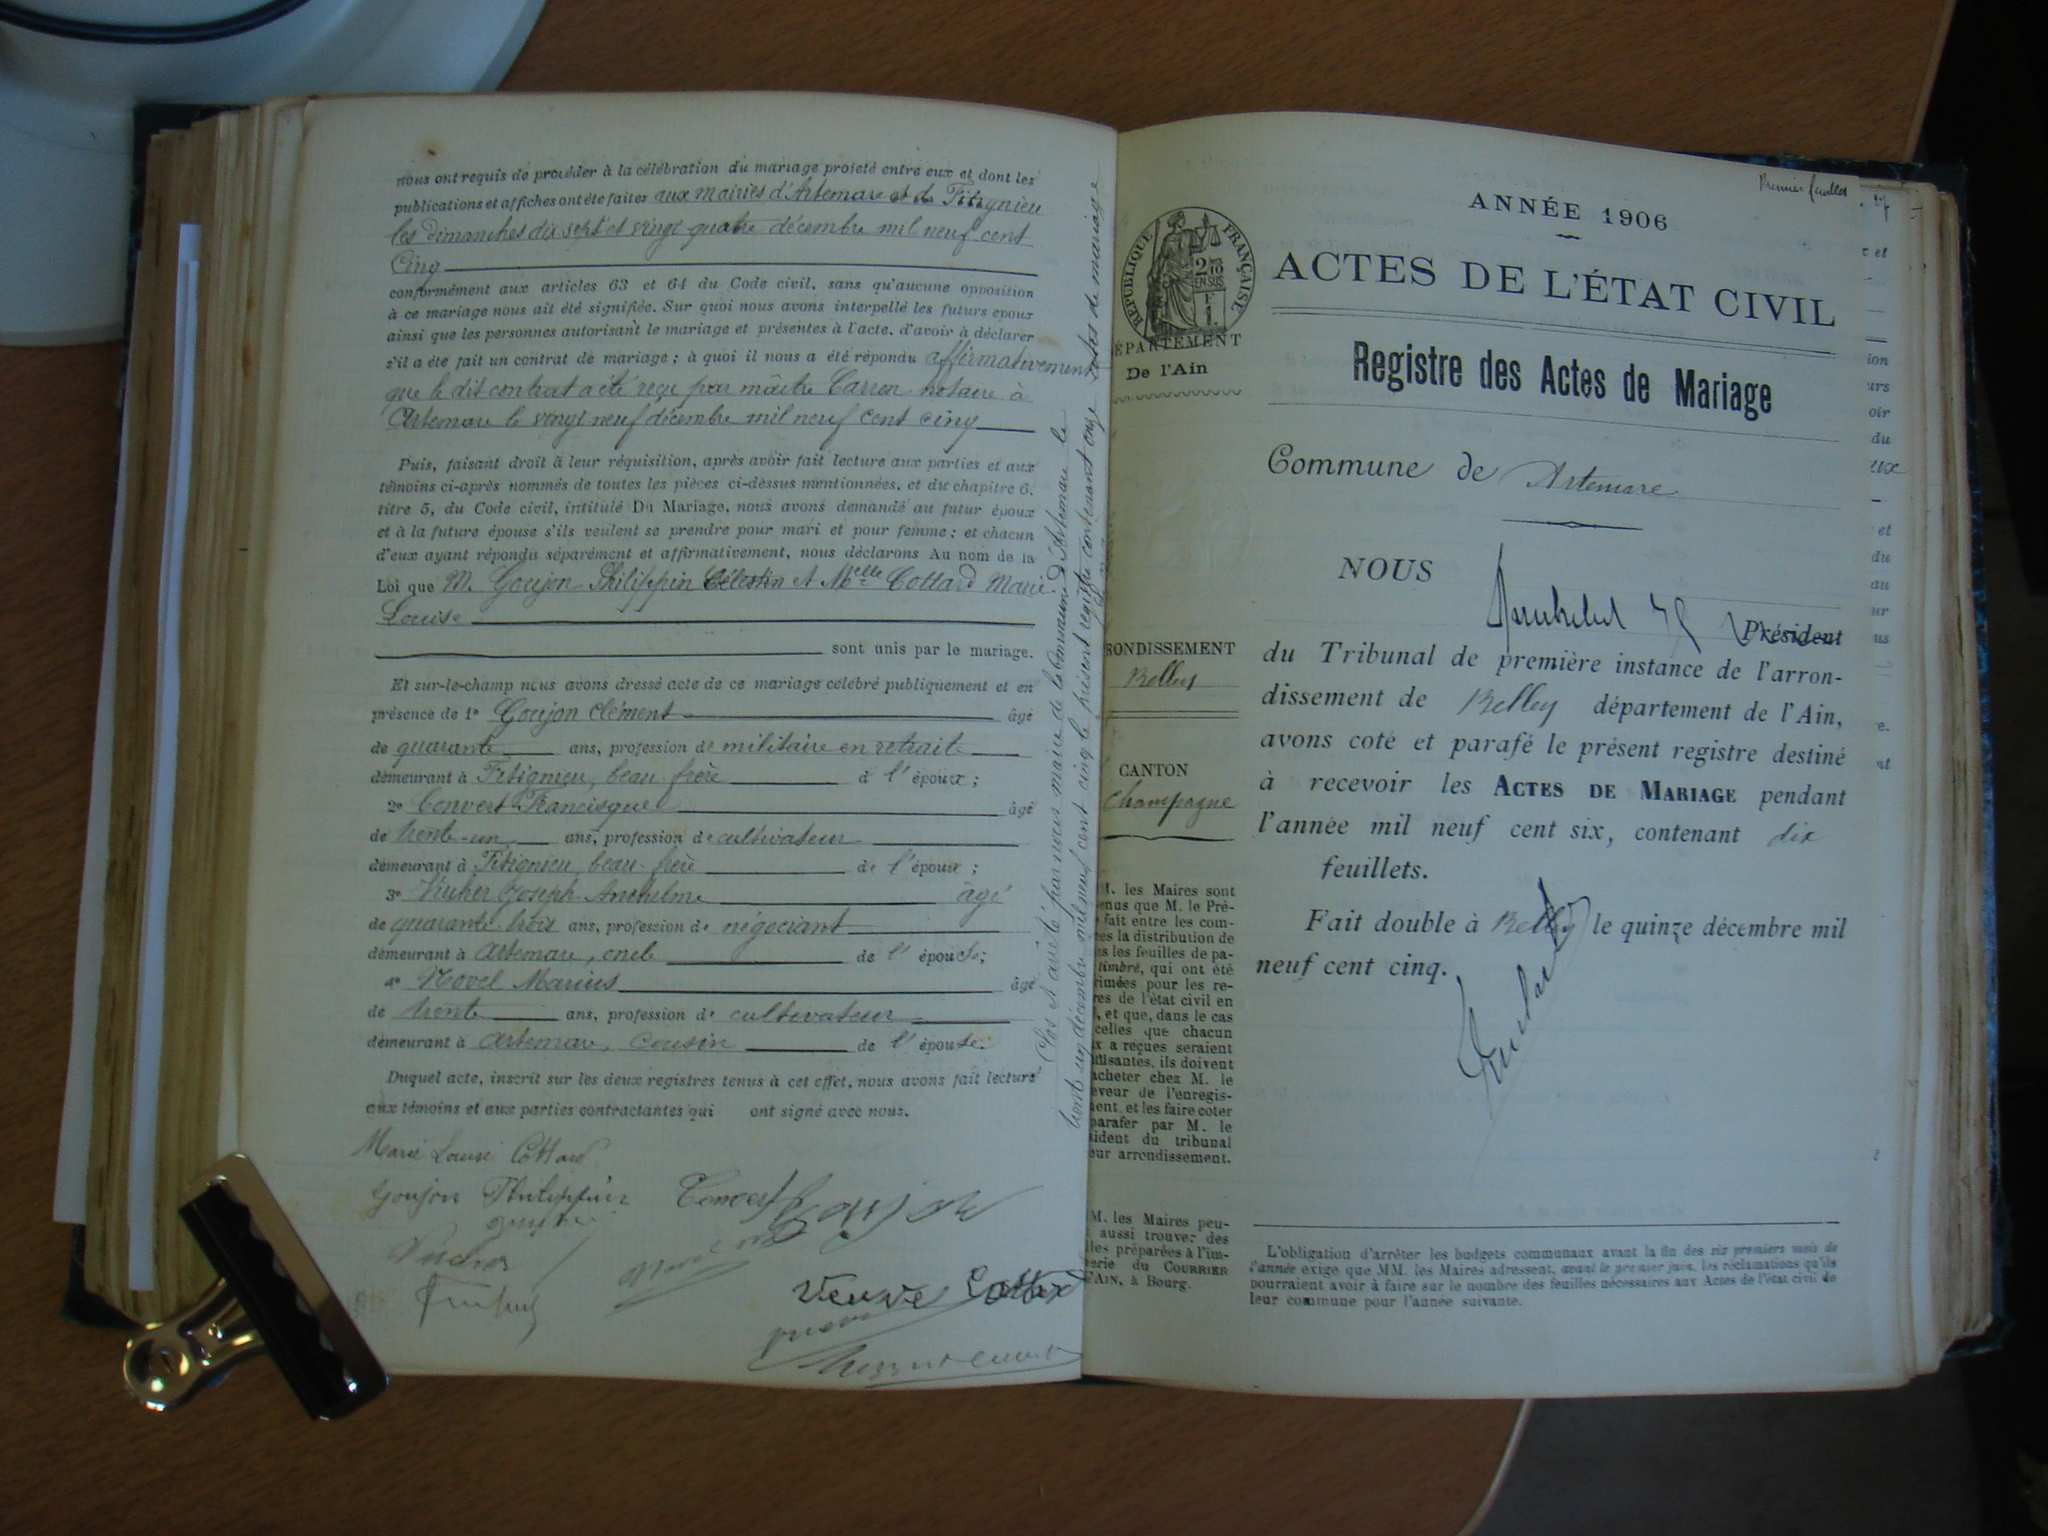 nous ont requis de procéder à la célébration du mariage projeté entre eux et dont les
publications et affiches ont été faites aux mairies d'Artemare et de Fitignieu
les dimanches dix sept et vingt quatre décembre mil neuf cent
Cinq
conformément aux articles 63 et 64 du Code civil, sans qu'aucune opposition
à ce mariage nous ait été signifiée. Sur quoi nous avons interpellé les futurs époux
ainsi que les personnes autorisant le mariage et présentes à l'acte, d'avoir à déclarer
s'il a été fait un contrat de mariage ; à quoi il nous a été répondu affirmativement
que le dit contrat a été reçu par maître Carron notaire à
Artemare le vingt neuf décembre mil neuf cent cinq
Puis, faisant droit à leur réquisition, après avoir fait lecture aux parties et aux
témoins ci-après nommés de toutes les pièces ci-dessus mentionnées, et du chapitre 6,
titre 5, du Code civil, intitulé Du Mariage, nous avons demandé au futur époux
et à la future épouse s'ils veulent se prendre pour mari et pour femme ; et chacun
d'eux ayant répondu séparément et affirmativement, nous déclarons Au nom de la
Loi que M. Goujon Philippin Célestin et Melle Cottard Marie
Louise
sont unis par le mariage.
Et sur-le-champ nous avons dressé acte de ce mariage célébré publiquement et en
présence de 1° Goujon Clément âgé
de quarante ans, profession de militaire en retraite
demeurant à Fitignieu, beau-frère d l'époux ;
2° Convert Francisque âgé
de trente-un ans, profession de cultivateur
demeurant à Fitignieu, beau-frère de l'époux ;
3° Joseph Anthelme âgé
de quarante trois ans, profession de négociant
demeurant à Artemare, oncle de l'épouse ;
4° Novel Marius âgé
de trente ans, profession de cultivateur
demeurant à Artemare, Cousin de l'épouse.
Duquel acte, inscrit sur les deux registres tenus à cet effet, nous avons fait lecture
aux témoins et aux parties contractantes qui ont signé avec nous.
Marie Louise Cottard
Goujon Philippin
Convert Goujon
Veuve Cottard
Clos et arrêté par nous maire de la commune d'Artemare le
trente un décembre mil neuf cent cinq le présent registre contenant onze actes de mariage
Premier feuillet
ANNÉE 1906
ACTES DE L'ÉTAT CIVIL
RÉPUBLIQUE FRANÇAISE
DÉPARTEMENT
De l'Ain
Registre des Actes de Mariage
Commune de Artemare
NOUS
Président
du Tribunal de première instance de l'arron-
dissement de Belley département de l'Ain,
avons coté et parafé le présent registre destiné
à recevoir les ACTES DE MARIAGE pendant
l'année mil neuf cent six, contenant dix
feuillets.
Fait double à Belley le quinze décembre mil
neuf cent cinq.
RONDISSEMENT
Belley
CANTON
Champagne
M. les Maires sont
enus que M. le Pré-
fait entre les com-
es la distribution de
s les feuilles de pa-
timbré, qui ont été
rimées pour les re-
res de l'état civil en
, et que, dans le cas
celles que chacun
x a reçues seraient
uffisantes, ils doivent
acheter chez M. le
eveur de l'enregis-
ent, et les faire coter
parafer par M. le
sident du tribunal
eur arrondissement.
M. les Maires peu-
aussi trouver des
lles préparées à l'im-
erie du COURRIER
'AIN, à Bourg.
L'obligation d'arrêter les budgets communaux avant la fin des six premiers mois de
l'année exige que MM. les Maires adressent, avant le premier juin, les réclamations qu'ils
pourraient avoir à faire sur le nombre des feuilles nécessaires aux Actes de l'état civil de
leur commune pour l'année suivante.